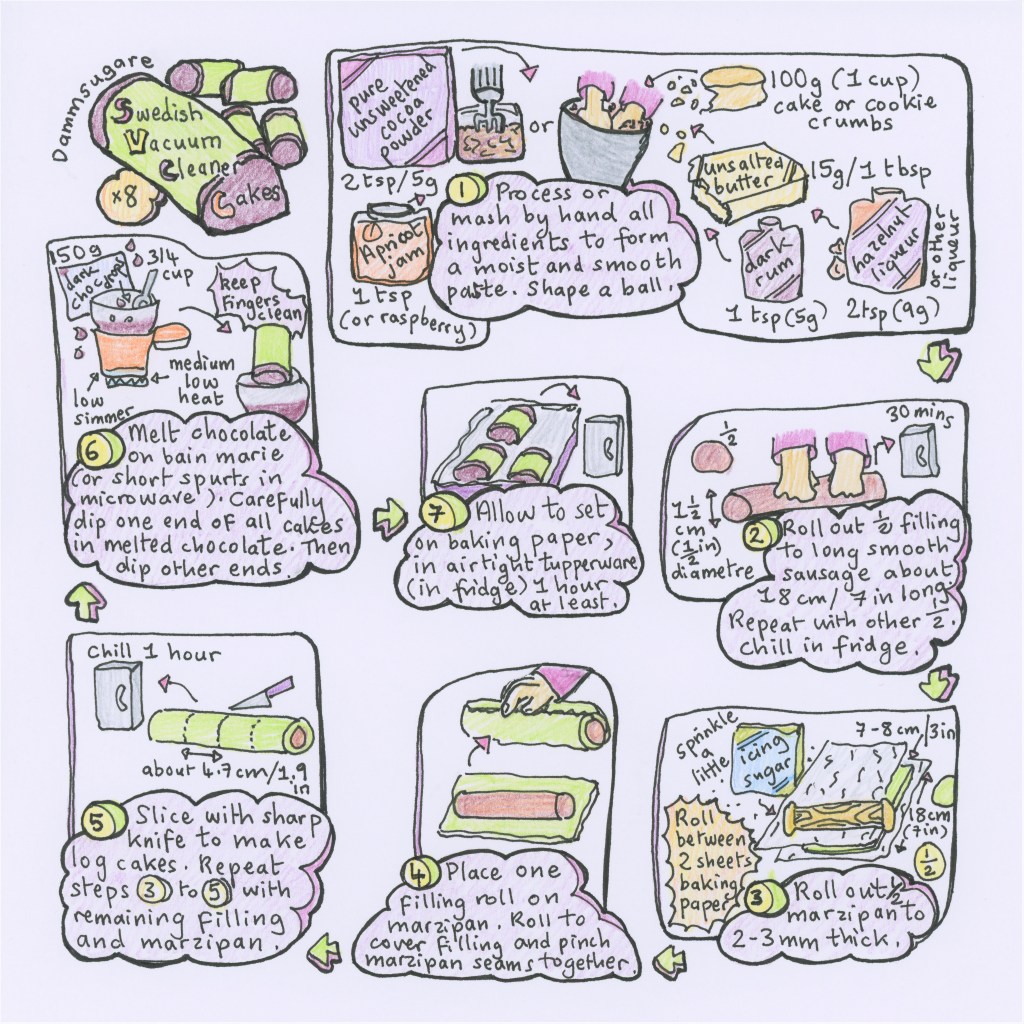 Dammsugare
Swedish
Vacuum
Cleaner
Cakes
×8
pure
unsweetened
cocoa
powder
2 tsp/5g
or
100g (1 cup)
cake or cookie
crumbs
unsalted
butter
15g/1 tbsp
Apricot
jam
1 tsp
(or raspberry)
dark
rum
1 tsp (5g)
hazelnut
liqueur
or other
liqueur
2tsp (9g)
1 Process or
mash by hand all
ingredients to form
a moist and smooth
paste. Shape a ball.
1/2
30 mins
1 1/2
cm
(1/2 in)
diametre
2 Roll out 1/2 filling
to long smooth
sausage about
18 cm/ 7 in long.
Repeat with other 1/2.
chill in fridge.
sprinkle
a
little
icing
sugar
7-8 cm/3in
18cm
(7in)
1/2
Roll
between
2 sheets
baking
paper
3 Roll out 1/2
marzipan to
2-3 mm thick.
4 Place one
filling roll on
marzipan. Roll to
cover filling and pinch
marzipan seams together.
Chill 1 hour
about 4.7cm/1.9
in
5 Slice with sharp
knife to make
log cakes. Repeat
steps 3 to 5 with
remaining filling
and marzipan.
150g
dark
choc drops
3/4
cup
keep
fingers
clean
low
simmer
medium
low
heat
6 Melt chocolate
on bain marie
(or short spurts in
microwave). Carefully
dip one end of all cakes
in melted chocolate. Then
dip other ends.
7 Allow to set
on baking paper,
in airtight tupperware
(in fridge) 1 hour
at least.